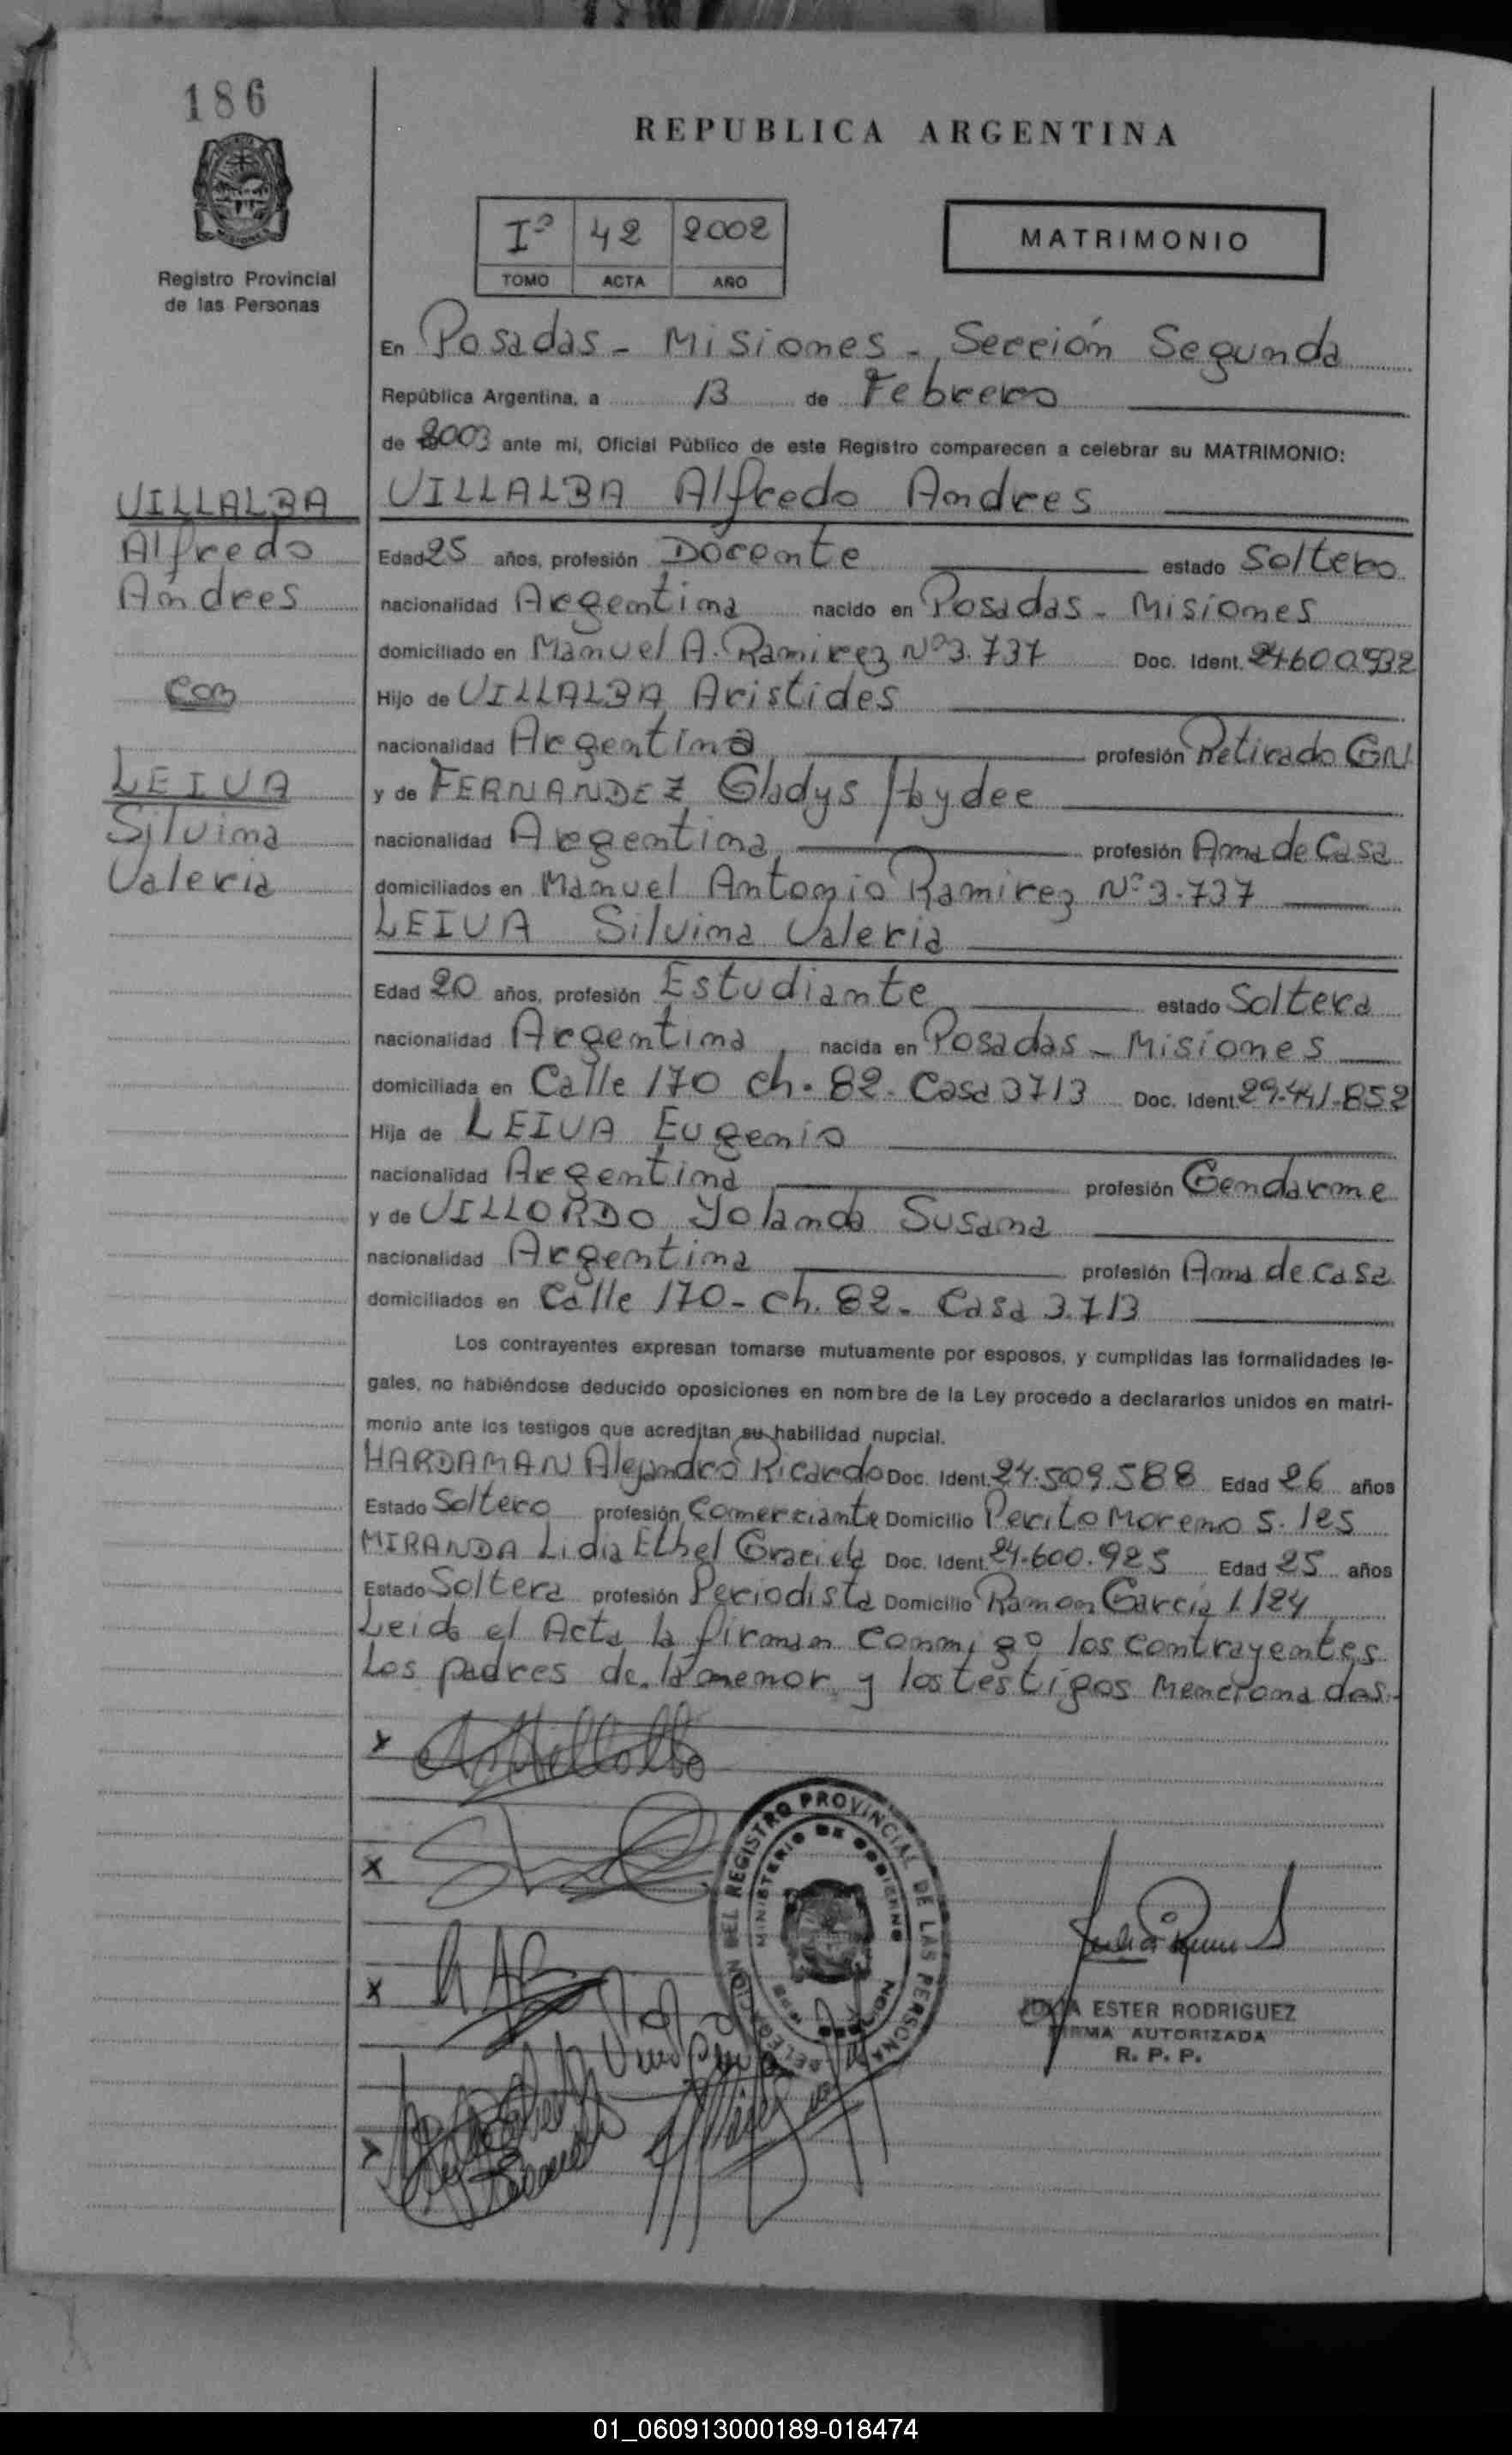 186
REPUBLICA ARGENTINA
Registro Provincial
de las Personas
Iº 42 2002
TOMO ACTA AÑO
MATRIMONIO
En Posadas - Misiones - Sección Segunda
República Argentina, a 13 de Febrero
de 2003 ante mi, Oficial Público de este Registro comparecen a celebrar su MATRIMONIO:
VILLALBA Alfredo Andres
VILLALBA
Alfredo
Andres
con
LEIVA
Silvina
Valeria
Edad 25 años, profesión Docente estado Soltero
nacionalidad Argentina nacido en Posadas - Misiones
domiciliado en Manuel A. Ramirez Nº 3.737 Doc. Ident. 24.600.932
Hijo de VILLALBA Aristides
nacionalidad Argentina profesión Retirado GN
y de FERNANDEZ Gladys Haydee
nacionalidad Argentina profesión Ama de Casa
domiciliados en Manuel Antonio Ramirez Nº 3.737
LEIVA Silvina Valeria
Edad 20 años, profesión Estudiante estado Soltera
nacionalidad Argentina, nacida en Posadas - Misiones
domiciliada en Calle 170 ch. 82. Casa 3713 Doc. Ident. 29.441.852
Hija de LEIVA Eugenio
nacionalidad Argentina profesión Gendarme
y de VILLORDO Yolanda Susana
nacionalidad Argentina profesión Ama de casa
domiciliados en Calle 170 - ch. 82 - Casa 3.713
Los contrayentes expresan tomarse mutuamente por esposos, y cumplidas las formalidades le-
gales, no habiéndose deducido oposiciones en nombre de la Ley procedo a declararlos unidos en matri-
monio ante los testigos que acreditan su habilidad nupcial.
HARDAMAN Alejandro Ricardo Doc. Ident. 24.509.588 Edad 26 años
Estado Soltero profesión Comerciante Domicilio Perito Moreno S. 1es
MIRANDA Lidia Ethel Graciela Doc. Ident. 24.600.925 Edad 25 años
Estado Soltera profesión Periodista Domicilio Ramon Garcia 1124
Leida el Acta la firman conmigo los contrayentes
Los padres de la menor y los testigos Mencionados.-
x
x
x
x
DELEGACION DEL REGISTRO PROVINCIAL DE LAS PERSONAS
MINISTERIO DE GOBIERNO
ESTER RODRIGUEZ
FIRMA AUTORIZADA
R. P. P.
01_060913000189-018474